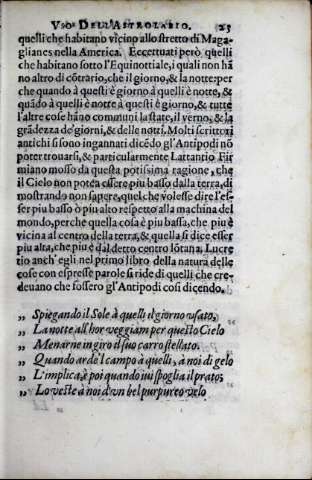 VSO DELL'ASTROLABIO. 25
quelli che habitano vicino allo stretto di Maga-
glianes nella America. Eccettuati però, quelli
che habitano sotto l'Equinottiale, i quali non hã
no altro di cõtrario, che il giorno, & la notte: per
che quando à questi è giorno à quelli è notte, &
quãdo à quelli è notte à questi è giorno, & tutte
l'altre cose hãno communi la state, il verno, & la
grãdezza de' giorni, & delle notti. Molti scrittori
antichi si sono ingannati dicẽdo gl'Antipodi nõ
poter trouarsi, & particularmente Lattantio Fir
miano mosso da questa potissima ragione, che
il Cielo non potea essere piu basso dalla terra, di
mostrando non sapere, quel che volesse dire l'es-
ser piu basso ò piu alto respetto alla machina del
mondo, perche quella cosa è piu bassa, che piu è
vicina al centro della terra, & quella si dice esser
piu alta, che piu è dal detto centro lõtana, Lucre
tio anch' egli nel primo libro della natura delle
cose con espresse parole si ride di quelli che cre-
deuano che fossero gl'Antipodi cosi dicendo.
„ Spiegando il Sole à quelli il giorno vsato,
„ La notte all'hor veggiam per questo Cielo
„ Menarne in giro il suo carro stellato.
„ Quando arde'l campo à quelli, à noi di gelo
„ L'implica, è poi quando iui spoglia il prato,
„ Lo veste à noi d'vn bel purpureo velo